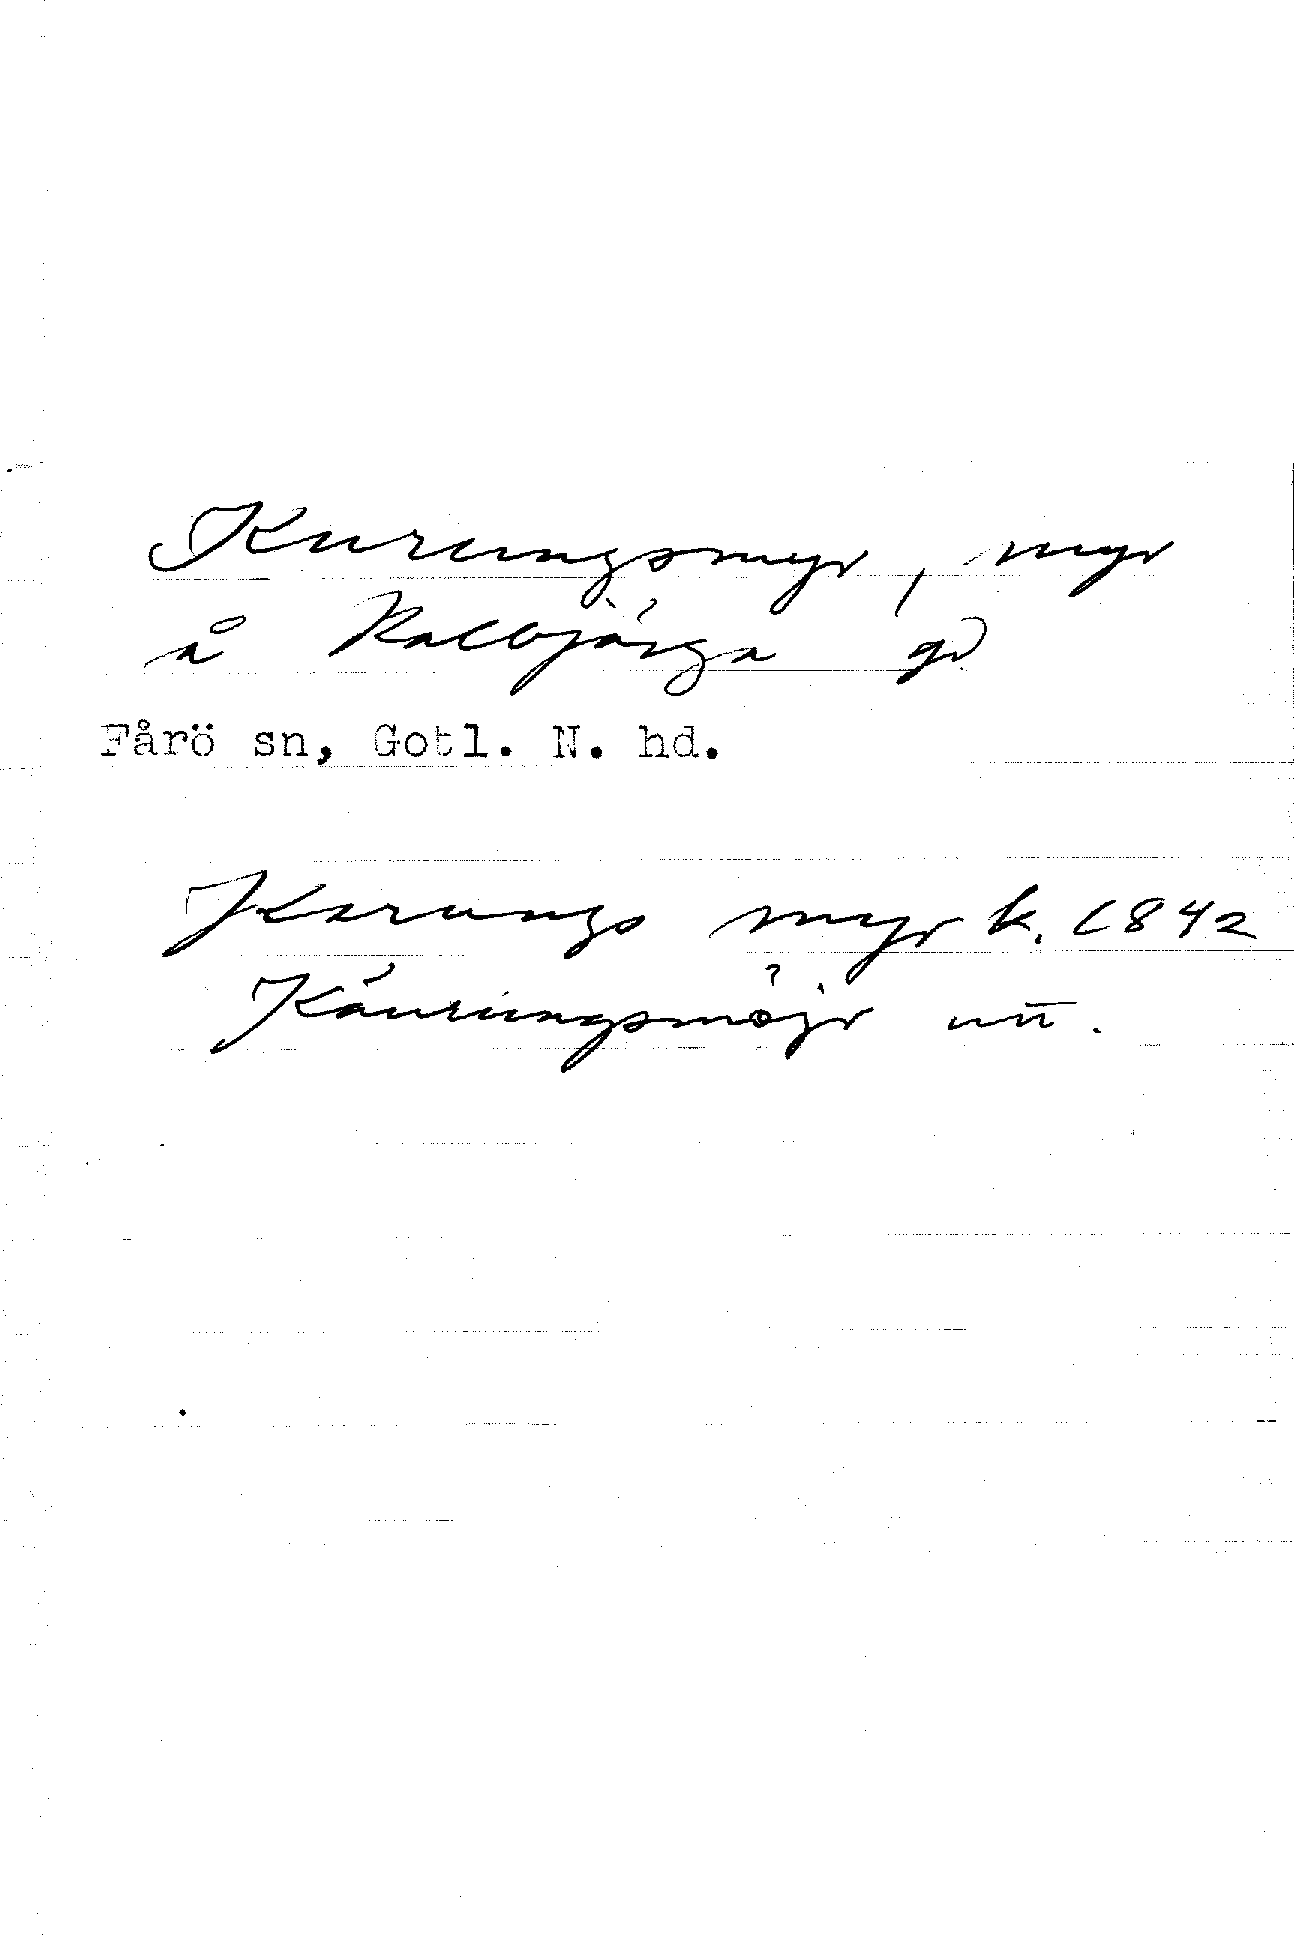 Kurungsmyr, myr
å Kalbjärga gd
Fårö sn, Gotl. N. hd.
Karungs myr k. 1842
Käurungsmöjr uū.